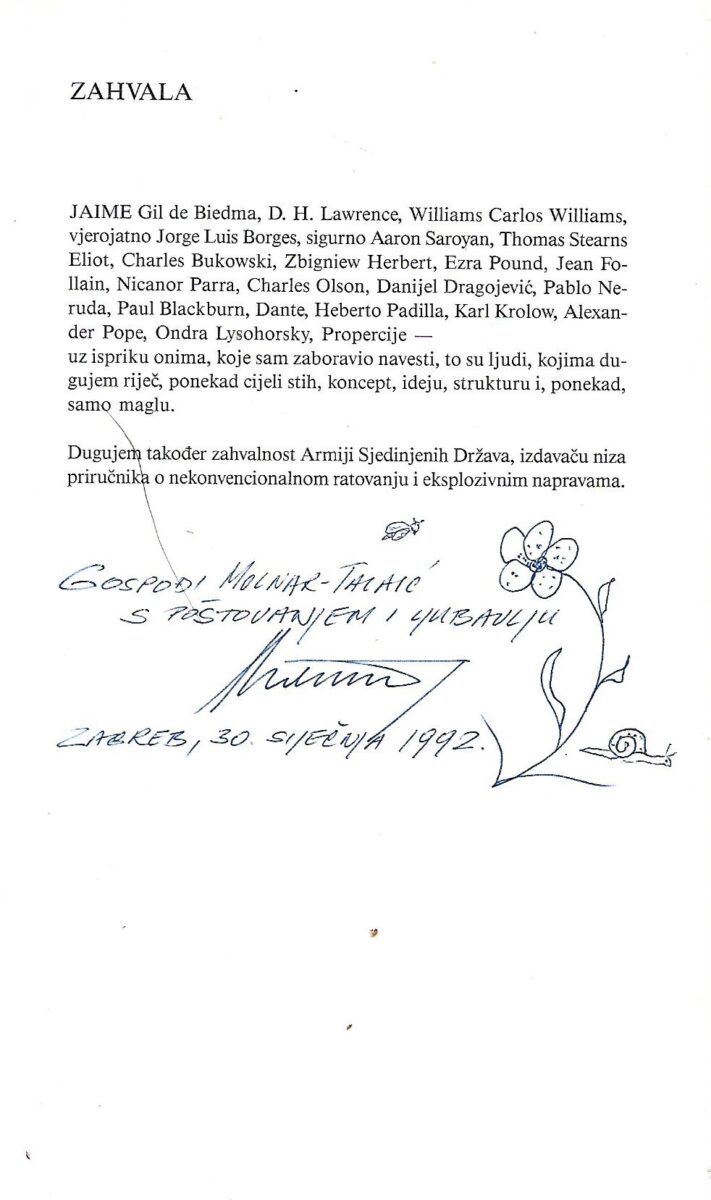 ZAHVALA
JAIME Gil de Biedma, D. H. Lawrence, Williams Carlos Williams,
vjerojatno Jorge Luis Borges, sigurno Aaron Saroyan, Thomas Stearns
Eliot, Charles Bukowski, Zbigniew Herbert, Ezra Pound, Jean Fo-
llain, Nicanor Parra, Charles Olson, Danijel Dragojević, Pablo Ne-
ruda, Paul Blackburn, Dante, Heberto Padilla, Karl Krolow, Alexan-
der Pope, Ondra Lysohorsky, Propercije —
uz ispriku onima, koje sam zaboravio navesti, to su ljudi, kojima du-
gujem riječ, ponekad cijeli stih, koncept, ideju, strukturu i, ponekad,
samo maglu.
Dugujem također zahvalnost Armiji Sjedinjenih Država, izdavaču niza
priručnika o nekonvencionalnom ratovanju i eksplozivnim napravama.
GOSPOĐI MOLNAR-TALAIĆ
S POŠTOVANJEM I LJUBAVLJU
ZAGREB, 30. SIJEČNJA 1992.